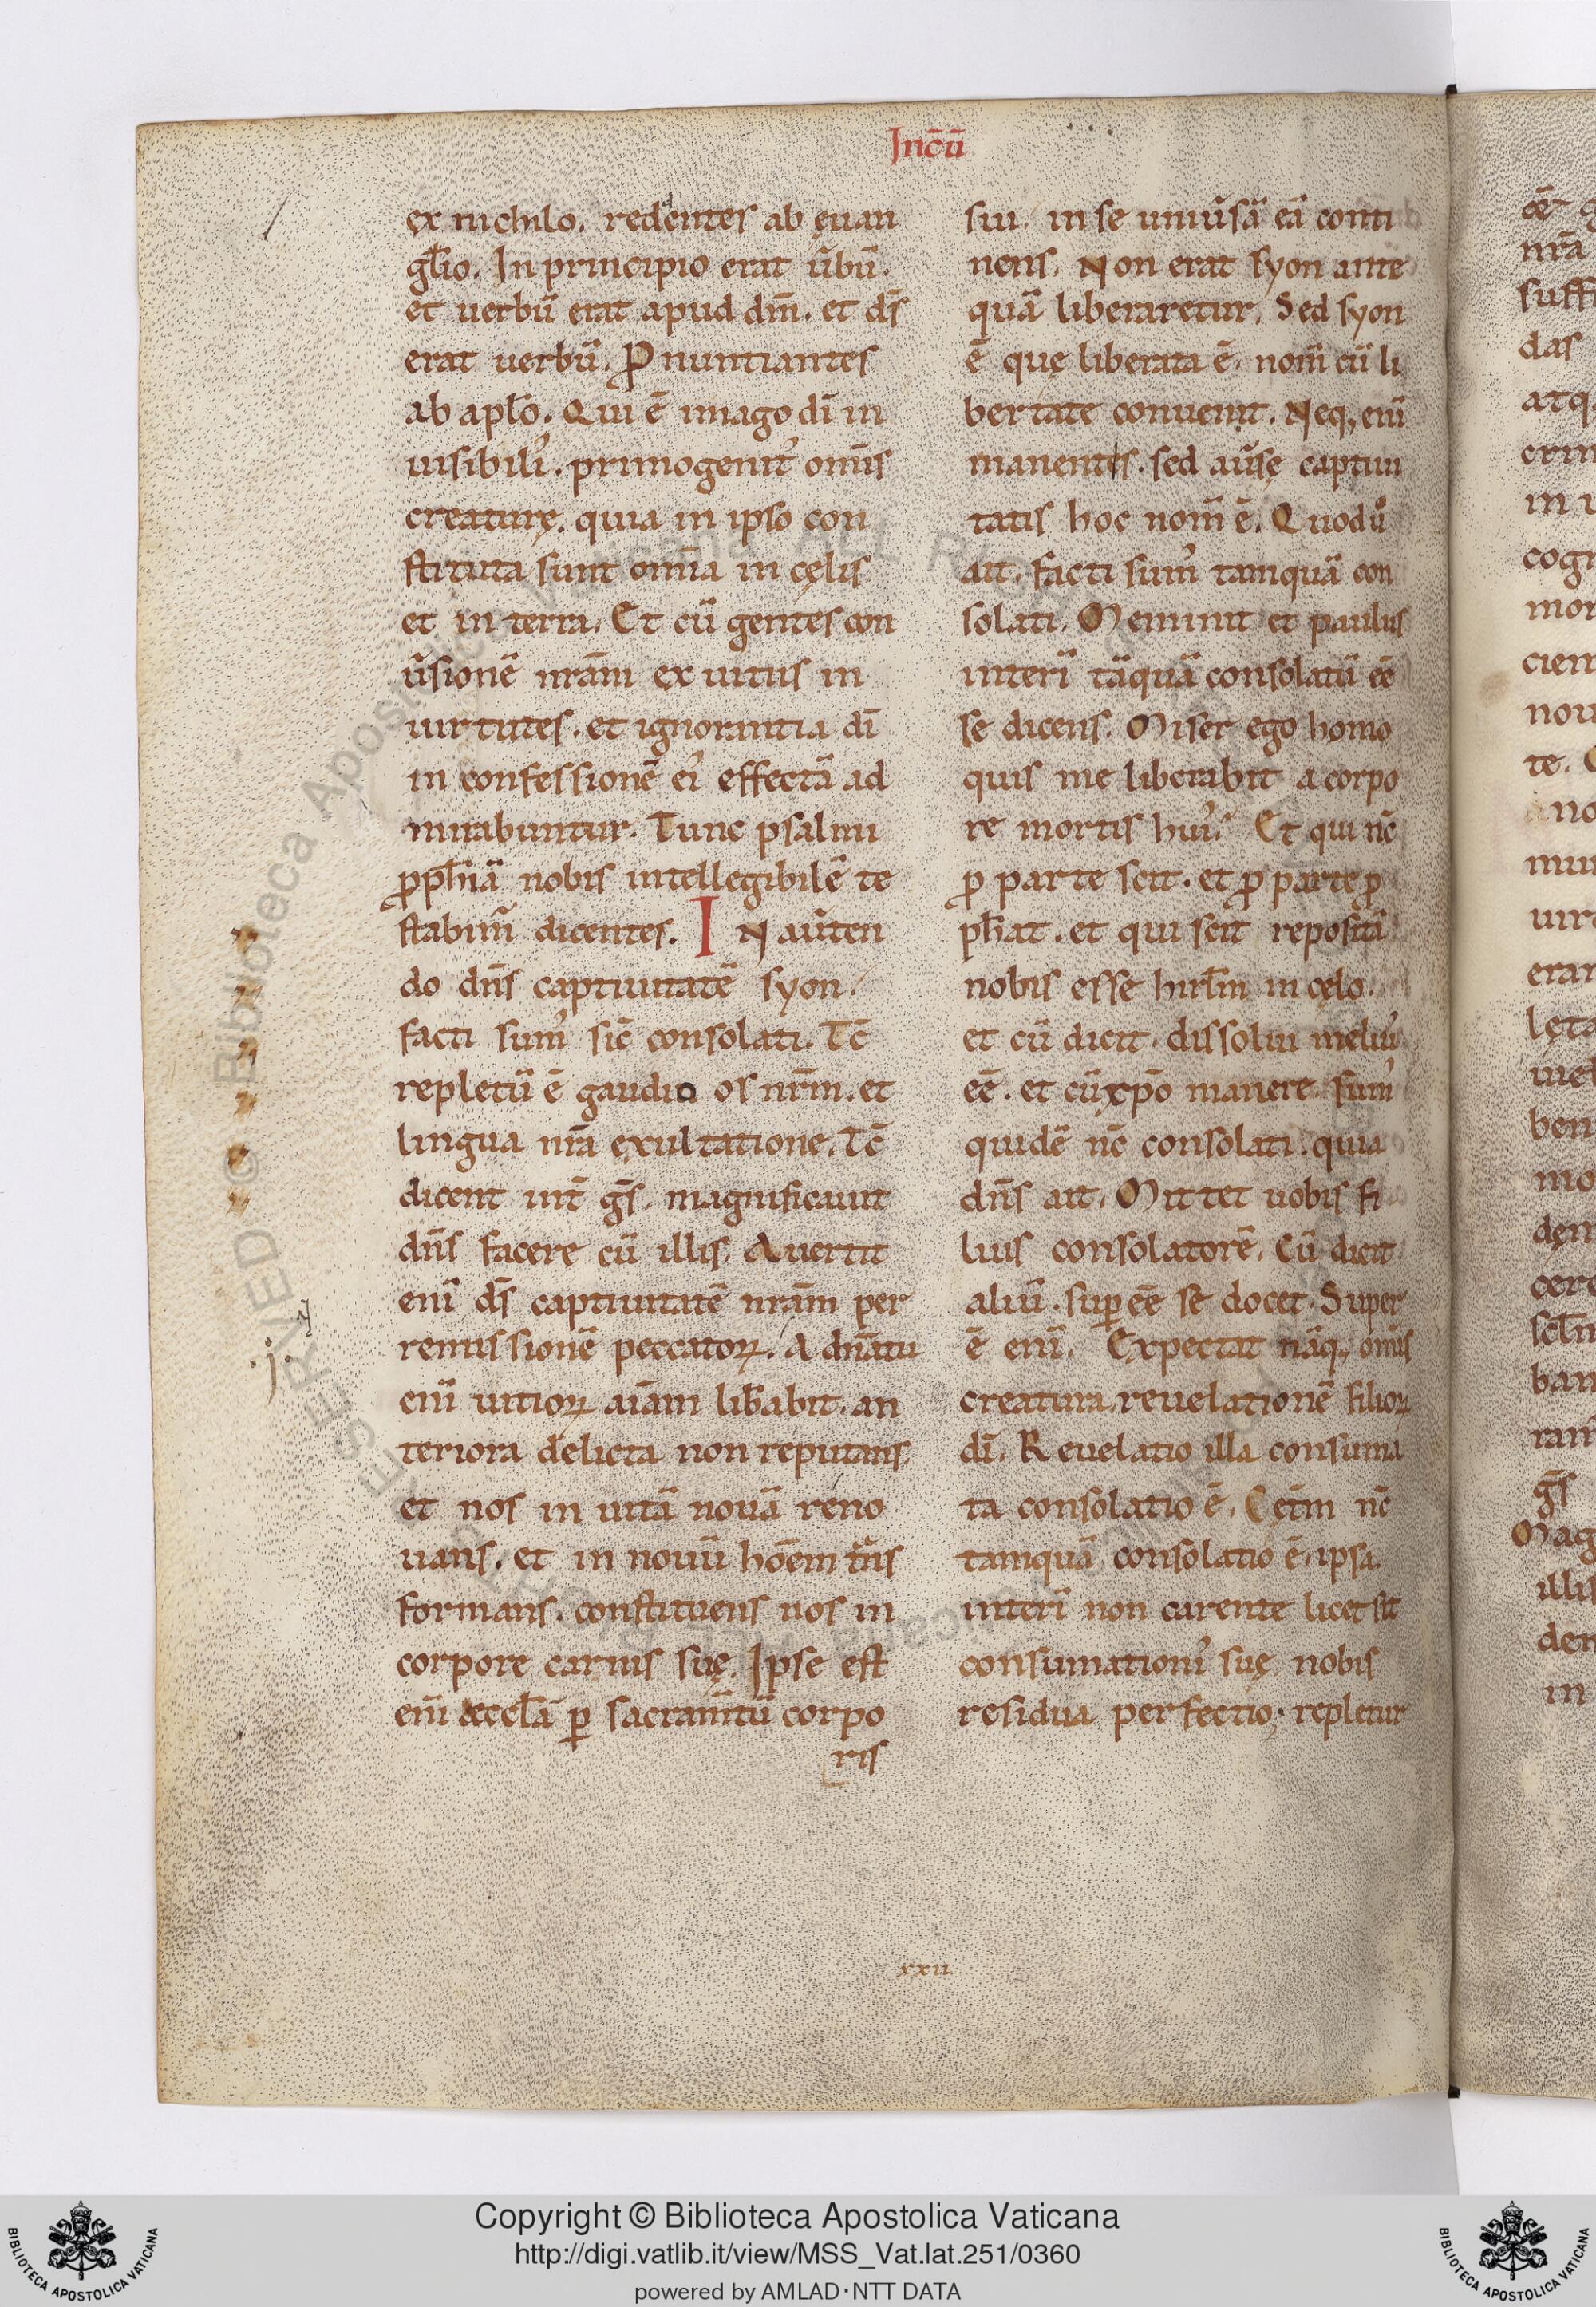 Jnc̄ū
ex nichilo. redentes ab euan
gl̄io. In principio erat ūbū.
et uerbū erat apud dm̄. et ds̄
erat uerbū. Pnuntiantes
ab apl̄o. Qui ē imago dī in
uisibiliʼ. primogenitʼ om̄is
creaturę. quia in ipso con
stituta sunt om̄ia in cęlis
et in terra. Et cū gentes con
ūsionē nr̄am ex uitiis in
uirtutes. et ignorantia dī
in confessionē eiʼ effectā ad
mirabuntur. Tunc psalmi
ꝓph̄iā nobis intellegibilē te
stabim̄ dicentes. IN aūten
do dn̄s captiuitatē syon.
facti sumʼ sic̄ consolati. Tc̄
repletū ē gaudio os nr̄m. et
lingua nr̄a exultatione. Tc̄
dicent int̄ gs̄. magnificauit
dn̄s facere cū illis. Auertit
eni̅ ds̄ captiuitatē nr̄am per
remissionē peccatoꝝ. A dn̄atu
eni̅ uitioꝝ aīam lib̄abit. an
teriora delicta non reputans.
et nos in uitā nouā reno
uans. et in nouū hōem tn̄s
formans. constituens nos in
corpore carnis suę. Ipse est
eni̅ æccl̄a ꝑ sacram̄tū corpo
ris
sui. in se uniūsā eā conti
nens. Non erat syon ante
quā liberaretur. Sed syon
ē quę liberata ē. nom̄ cū li
bertate conuenit. Neq; eni̅
manentis. sed aūsę captiui
tatis hoc nom̄ ē. Quod uͦ
ait. facti sumʼ tamquā con
solati. Meminit et paulus
interī tāquā consolatū eē
se dicens. Miser ego homo
quis me liberabit a corpo
re mortis huiʼ. Et qui nc̄
ꝓ parte scit. et ꝓ parte ꝓ
ph̄at. et qui scit repositā
nobis esse hirl̄m in cęlo.
et cū dicit. dissolui meliuʼ
eē. et cū xp̄o manere. sumʼ
quidē nc̄ consolati. quia
dn̄s ait. Mittet uobis fi
lius consolatorē. Cū dicit
aliū. suꝑ eē se docet. Super
ē eni̅. Expectat nāq; om̄is
creatura. reuelationē filioꝝ
dī. Reuelatio illa consuma
ta consolatio ē. Cęt̄m nc̄
tamquā consolatio ē. ipsa
interī non carente licet sit
consumationiʼ suę. nobis
residua perfectio; repletur
xxii
Copyright © Biblioteca Apostolica Vaticana
http://digi.vatlib.it/view/MSS_Vat.lat.251/0360
powered by AMLAD·NTT DATA